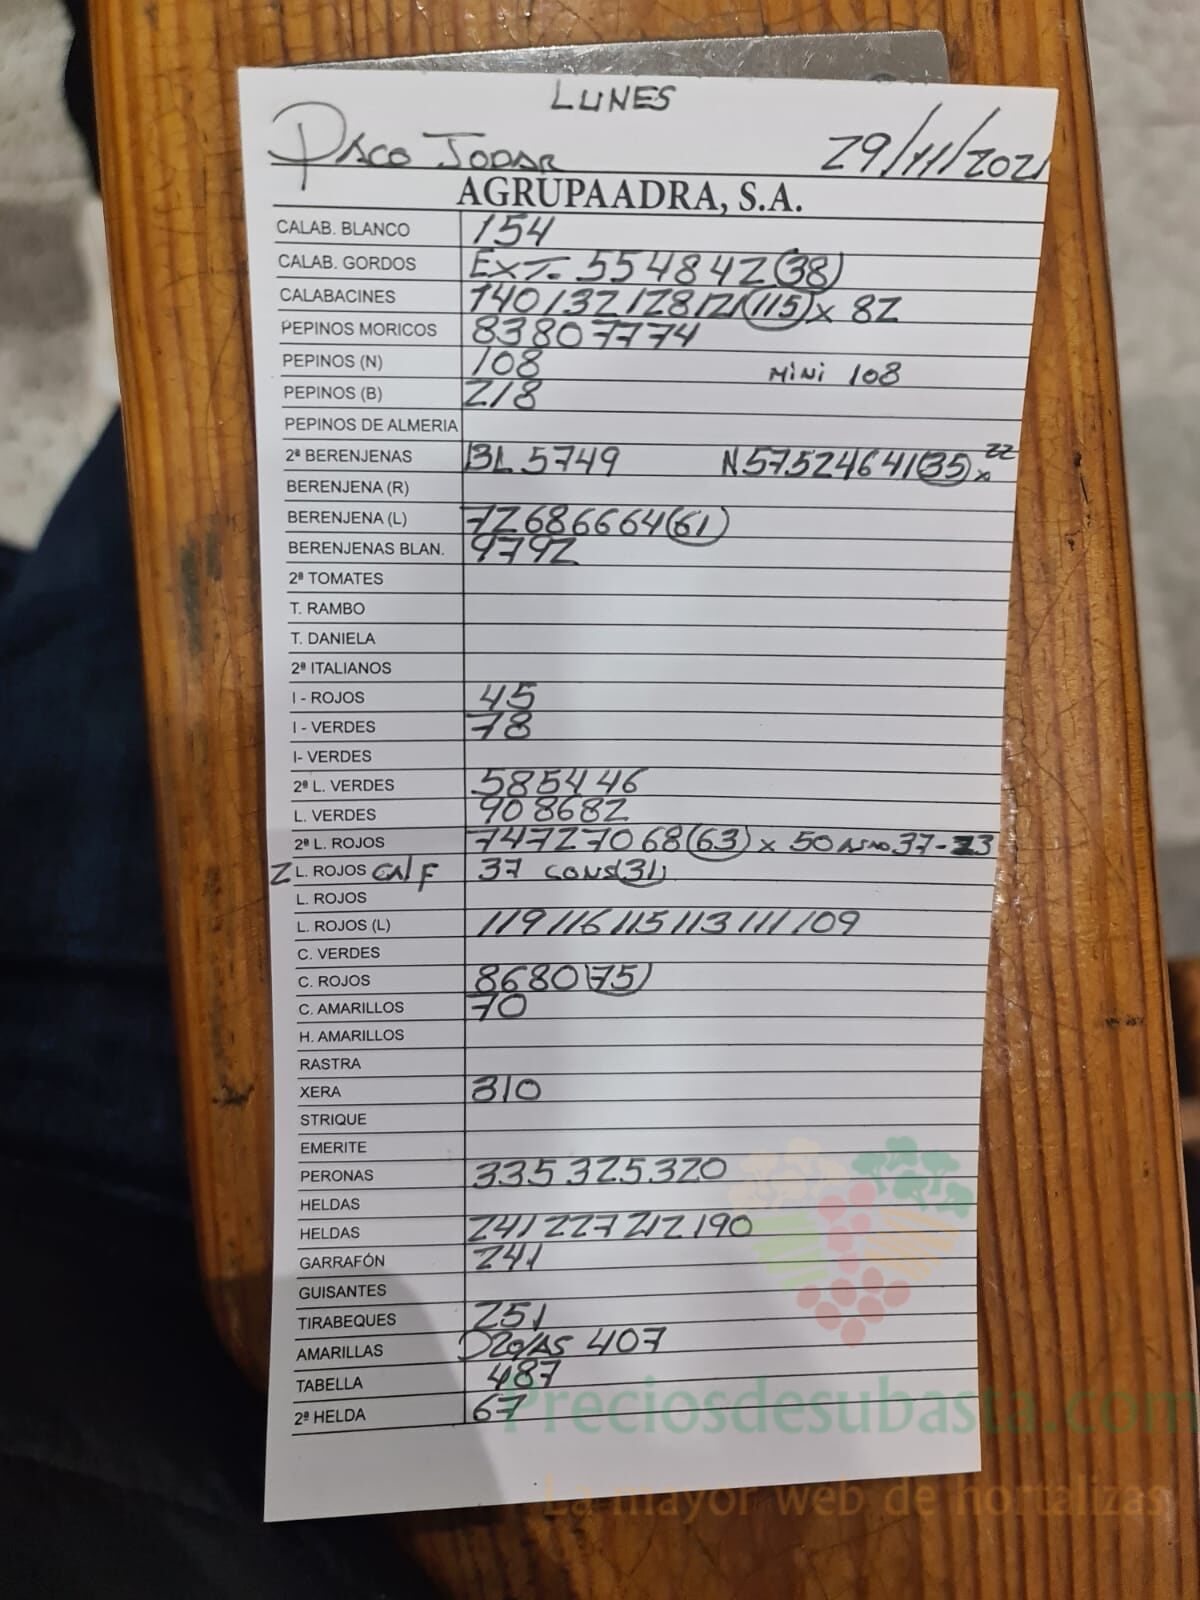 LUNES
PACO JODAR 29/11/2021
AGRUPAADRA, S.A.
CALAB. BLANCO 154
CALAB. GORDOS EXT. 55 48 42 (38)
CALABACINES 140 132 128 121 (115) x 82
PEPINOS MORICOS 83 80 77 74
PEPINOS (N) 108 MINI 108
PEPINOS (B) 218
PEPINOS DE ALMERIA
2ª BERENJENAS BL 57 49 N 57 52 46 41 (35) x 22
BERENJENA (R)
BERENJENA (L) 72 68 66 64 (61)
BERENJENAS BLAN. 97 92
2ª TOMATES
T. RAMBO
T. DANIELA
2ª ITALIANOS
I - ROJOS 45
I - VERDES 78
I- VERDES
2ª L. VERDES 58 54 46
L. VERDES 90 86 82
2ª L. ROJOS 74 72 70 68 (63) x 50 ASAO 37-33
2 L. ROJOS CAl F 37 CONS (31)
L. ROJOS
L. ROJOS (L) 119 116 115 113 111 109
C. VERDES
C. ROJOS 86 80 (75)
C. AMARILLOS 70
H. AMARILLOS
RASTRA
XERA 310
STRIQUE
EMERITE
PERONAS 335 325 320
HELDAS
HELDAS 241 227 212 190
GARRAFÓN 241
GUISANTES
TIRABEQUES 251
AMARILLAS 407
TABELLA 487
2ª HELDA 67
Preciosdesubasta.com
La mayor web de hortalizas